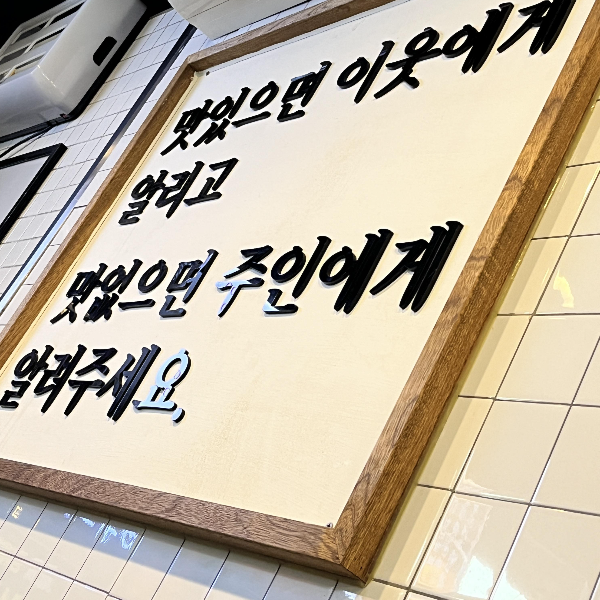 맛있으면 이웃에게
알리고
맛없으면 주인에게
알려주세요,